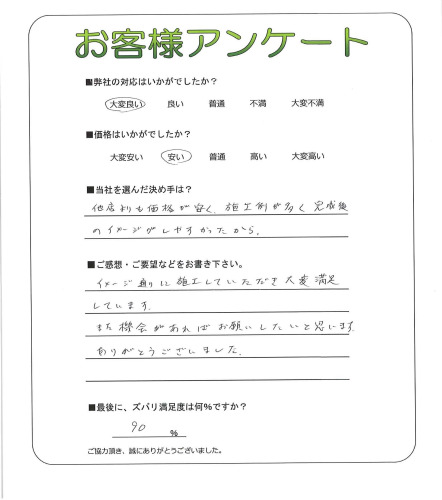 お客様アンケート
■弊社の対応はいかがでしたか？
大変良い 良い 普通 不満 大変不満
■価格はいかがでしたか？
大変安い 安い 普通 高い 大変高い
■当社を選んだ決め手は？
他店よりも価格が安く、施工例が多く完成後
のイメージがしやすかったから。
■ご感想・ご要望などをお書き下さい。
イメージ通りに施工していただき大変満足
しています。
また機会があればお願いしたいと思います。
ありがとうございました。
■最後に、ズバリ満足度は何%ですか？
90 %
ご協力頂き、誠にありがとうございました。